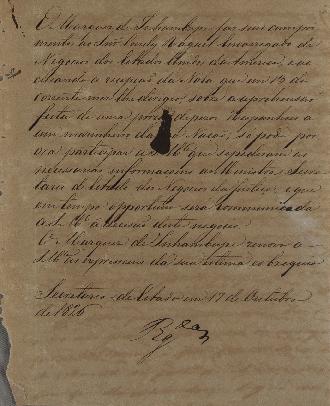 O Marquez de Inhambupe faz seus cumpri
mentos ao Snr. Condy Raguet Encarregado de
Negocios dos Estados Unidos da America, e ac
cusando a recepção da Nota, que em 13 do
corrente mez lhe dirigio, sobre a aprehensão
feita de uma porção de pezos Hespanhoes a
um marinheiro da Nação, só pode por
ora participar a S. Mce. que se pediram as
necessarias informações ao Ministro e Secre
tario de Estado dos Negocios da Justiça, e que
em tempo opportuno será communicada
a S. Mce. a decisão deste negocio.
O Marquez de Inhambupe renova a
S. Mce. as expressoens da sua estima e obsequio
Secretaria de Estado em 17 de Outubro
de 1826